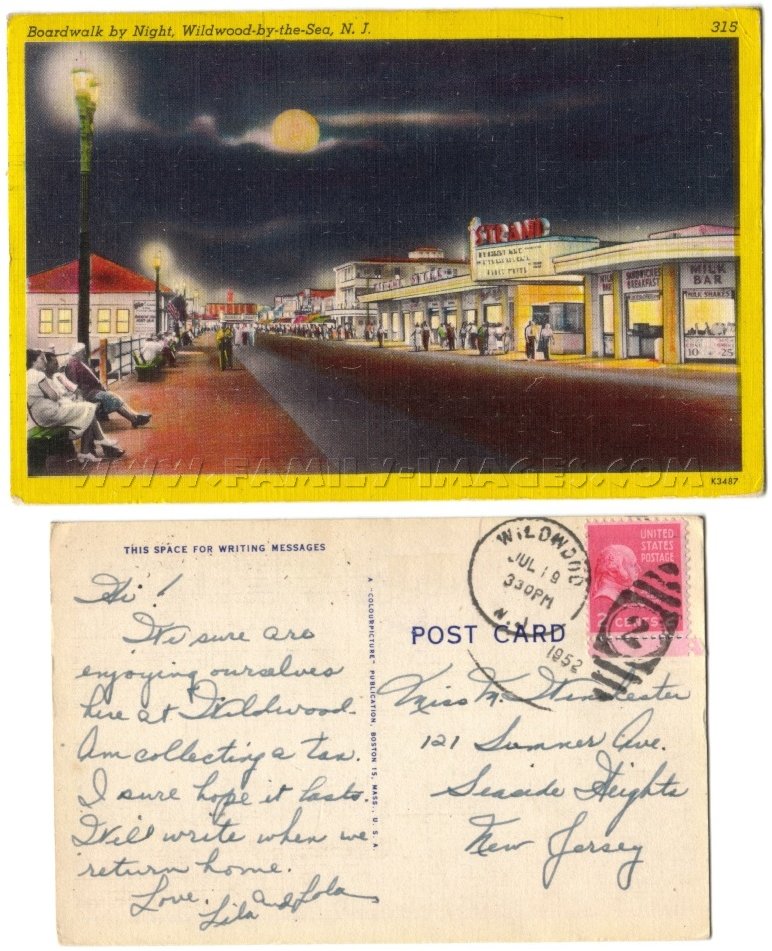 Boardwalk by Night, Wildwood-by-the-Sea, N. J.
315
STRAND
SANDWICHES
BREAKFAST
MILK
BAR
MILK SHAKES
10 25
WWW.FAMILY-IMAGES.COM
K3487
THIS SPACE FOR WRITING MESSAGES
Hi!
We sure are
enjoying ourselves
here at Wildwood.
Am collecting a tan.
I sure hope it lasts.
Will write when we
return home.
Love,
Lila and Lola
A "COLOURPICTURE" PUBLICATION, BOSTON 15, MASS., U. S. A.
WILDWOOD
JUL 19
330PM
N.J.
1952
UNITED
STATES
POSTAGE
2 CENTS
2
POST CARD
Miss M. Winchester
121 Sumner Ave.
Seaside Heights
New Jersey